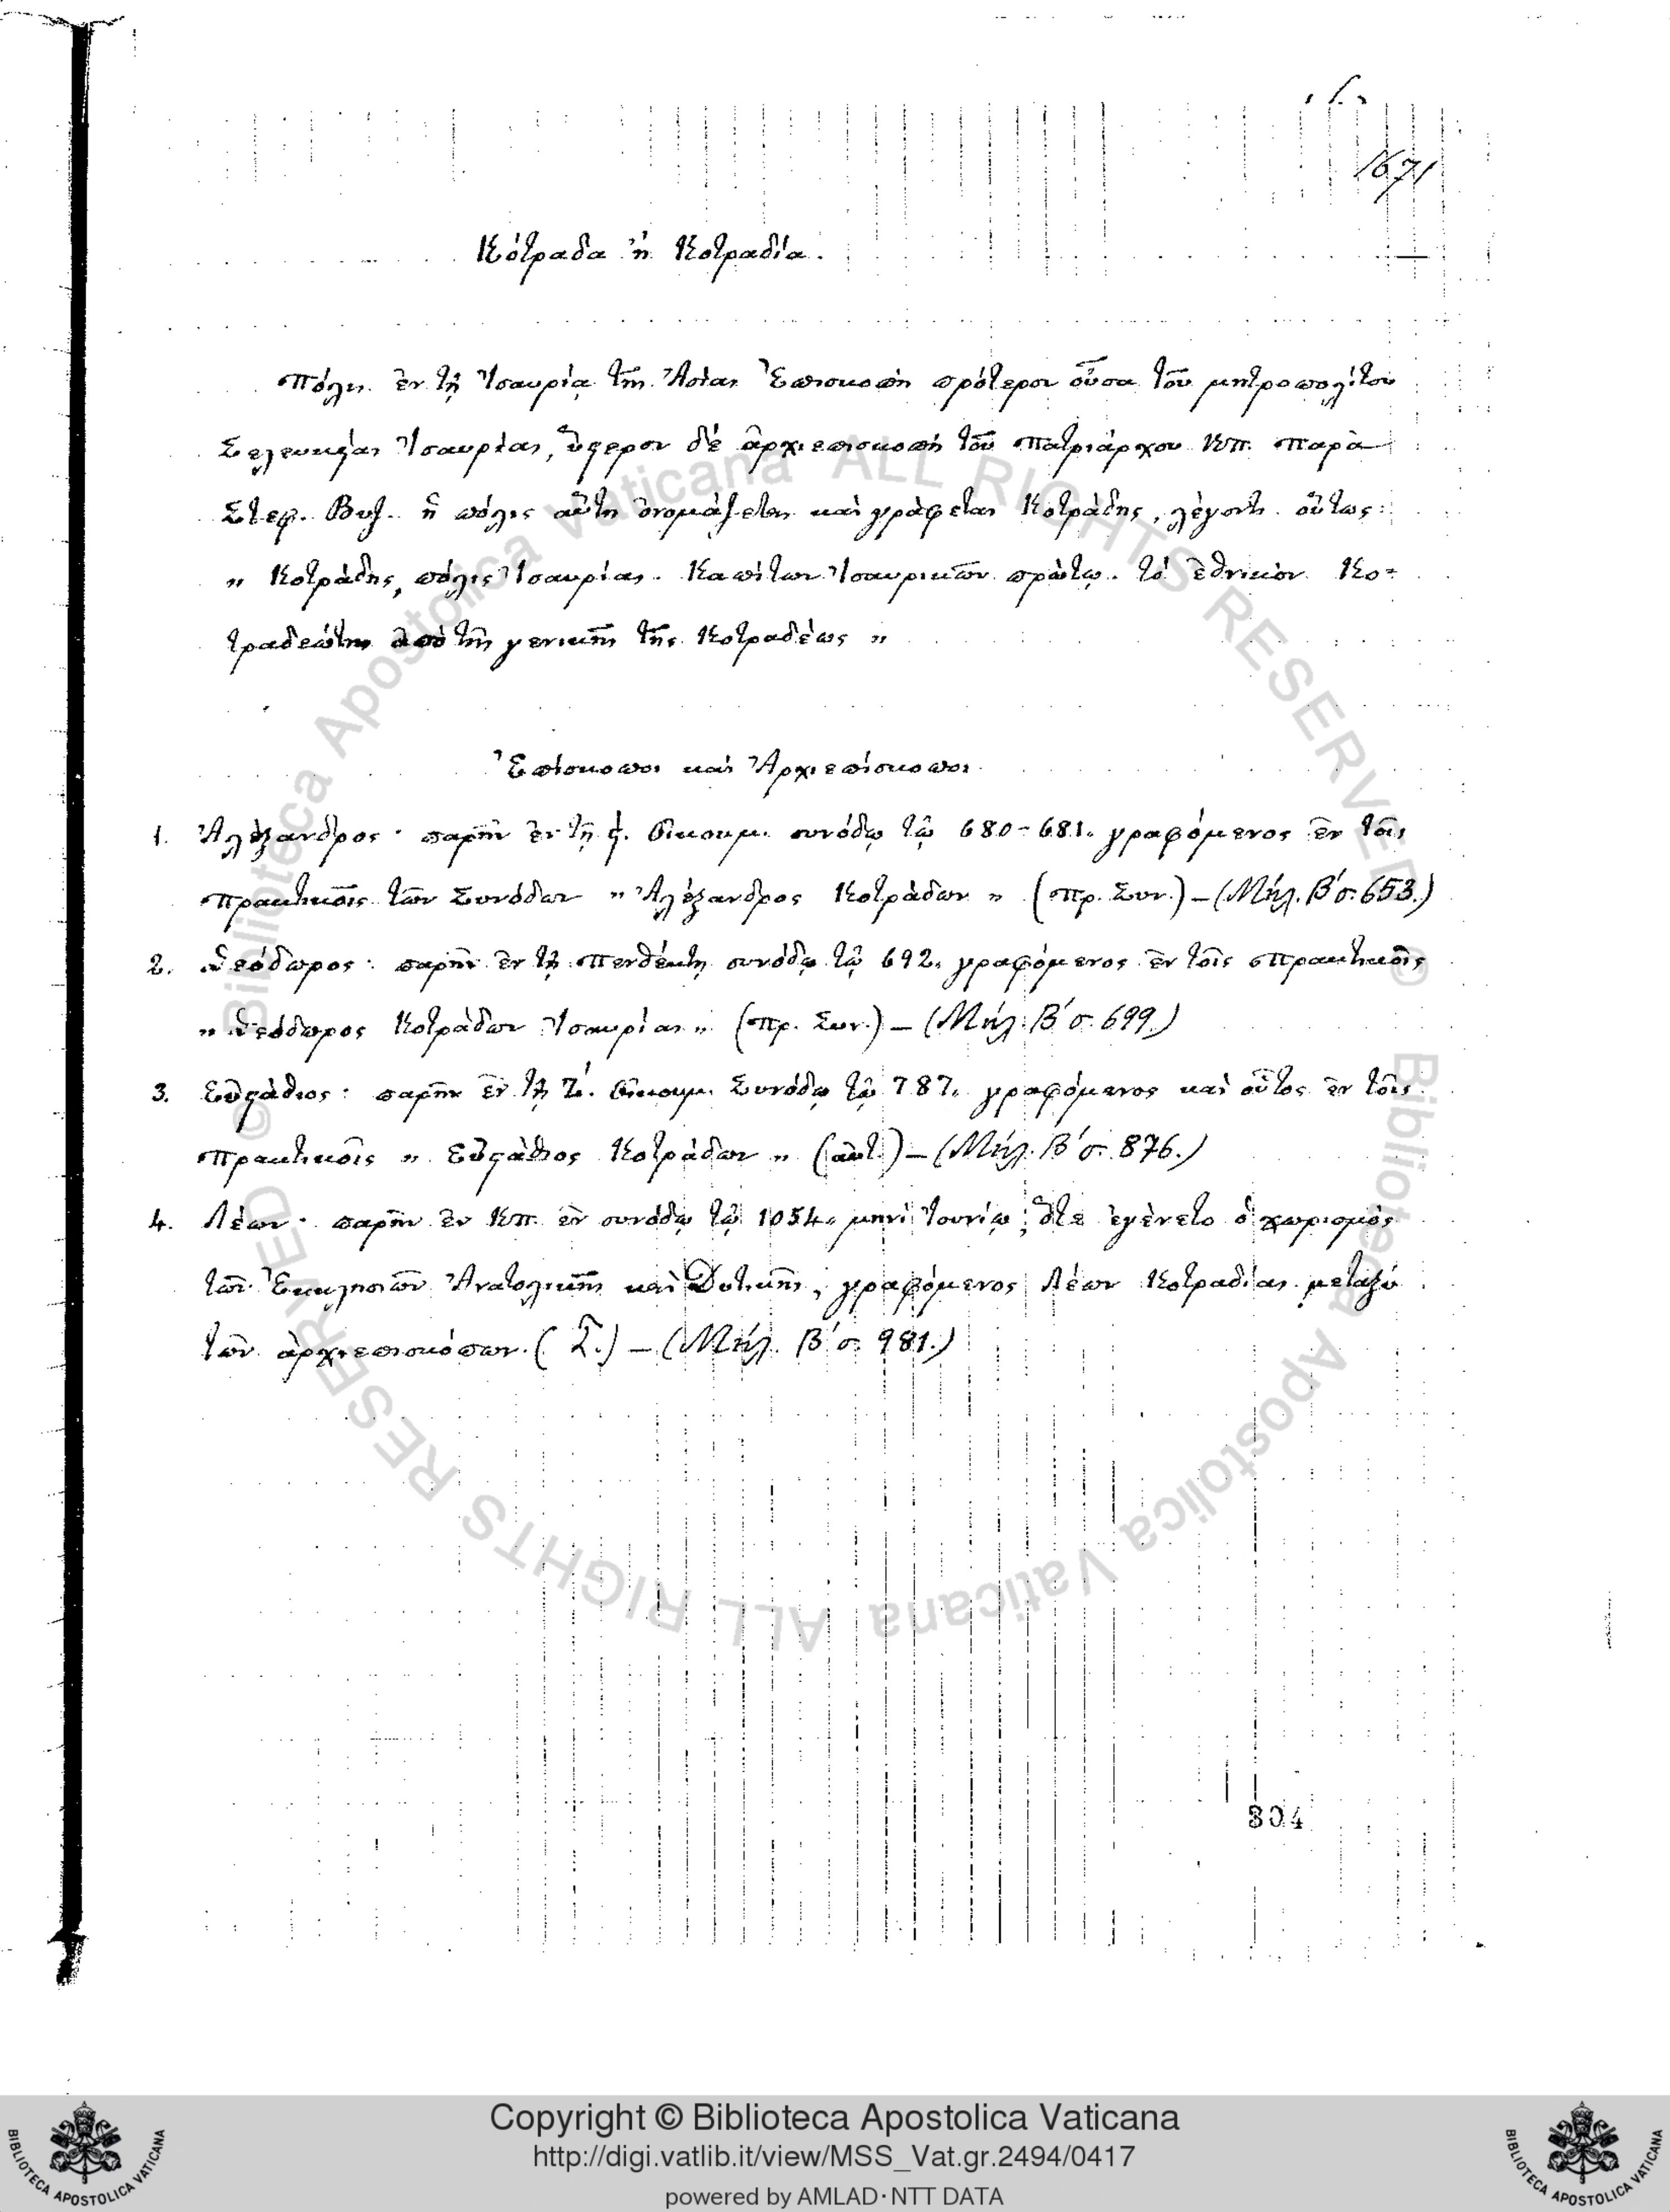 1671
Κότραδα ἢ Κοτραδία.
Πόλις ἐν τῇ Ἰσαυρίᾳ τῆς Ἀσίας Ἐπισκοπὴ πρότερον οὖσα τοῦ μητροπολίτου
Σελευκείας Ἰσαυρίας, ὕστερον δὲ ἀρχιεπισκοπὴ τοῦ Πατριάρχου Κπ. Παρὰ
Στεφ. Βυζ. ἡ πόλις αὕτη ὀνομάζεται καὶ γράφεται Κοτράδης, λέγοντι οὕτως:
„ Κοτράδης, πόλις Ἰσαυρίας. Καπίτων Ἰσαυρικῶν πρώτῳ. τὸ ἐθνικὸν Κο-
τραδεώτης ἀπὸ τῆς γενικῆς τῆς Κοτραδέως „
Ἐπίσκοποι καὶ Ἀρχιεπίσκοποι.
1. Ἀλέξανδρος· παρῆν ἐν τῇ ϛ. Οἰκουμ. συνόδῳ τῷ 680-681. γραφόμενος ἐν τοῖς
Πρακτικοῖς τῶν Συνόδων „ Ἀλέξανδρος Κοτράδων „ (Πρ. Συν.) – (Μήλ. Β΄ σ. 653.)
2. Θεόδωρος: παρῆν ἐν τῇ Πενθέκτῃ συνόδῳ τῷ 692. γραφόμενος ἐν τοῖς Πρακτικοῖς
„ Θεόδωρος Κοτράδων Ἰσαυρίας „ (Πρ. Συν.) – (Μήλ. Β΄ σ. 699.)
3. Εὐστάθιος: παρῆν ἐν τῇ Ζ΄. Οἰκουμ. Συνόδῳ τῷ 787. γραφόμενος καὶ οὗτος ἐν τοῖς
Πρακτικοῖς „ Εὐστάθιος Κοτράδων „ (αὐτ.) – (Μήλ. Β΄ σ. 876.)
4. Λέων· παρῆν ἐν Κπ. ἐν συνόδῳ τῷ 1054. μηνὶ Ἰουνίῳ, ὅτε ἐγένετο ὁ χωρισμὸς
τῶν Ἐκκλησιῶν Ἀνατολικῆς καὶ Δυτικῆς, γραφόμενος Λέων Κοτραδίας μεταξὺ
τῶν ἀρχιεπισκόπων. (Σ.) – (Μήλ. Β΄ σ. 981.)
804
© Biblioteca Apostolica Vaticana ALL RIGHTS RESERVED
© Biblioteca Apostolica Vaticana ALL RIGHTS RESERVED
Copyright © Biblioteca Apostolica Vaticana
http://digi.vatlib.it/view/MSS_Vat.gr.2494/0417
powered by AMLAD·NTT DATA
BIBLIOTECA APOSTOLICA VATICANA
BIBLIOTECA APOSTOLICA VATICANA